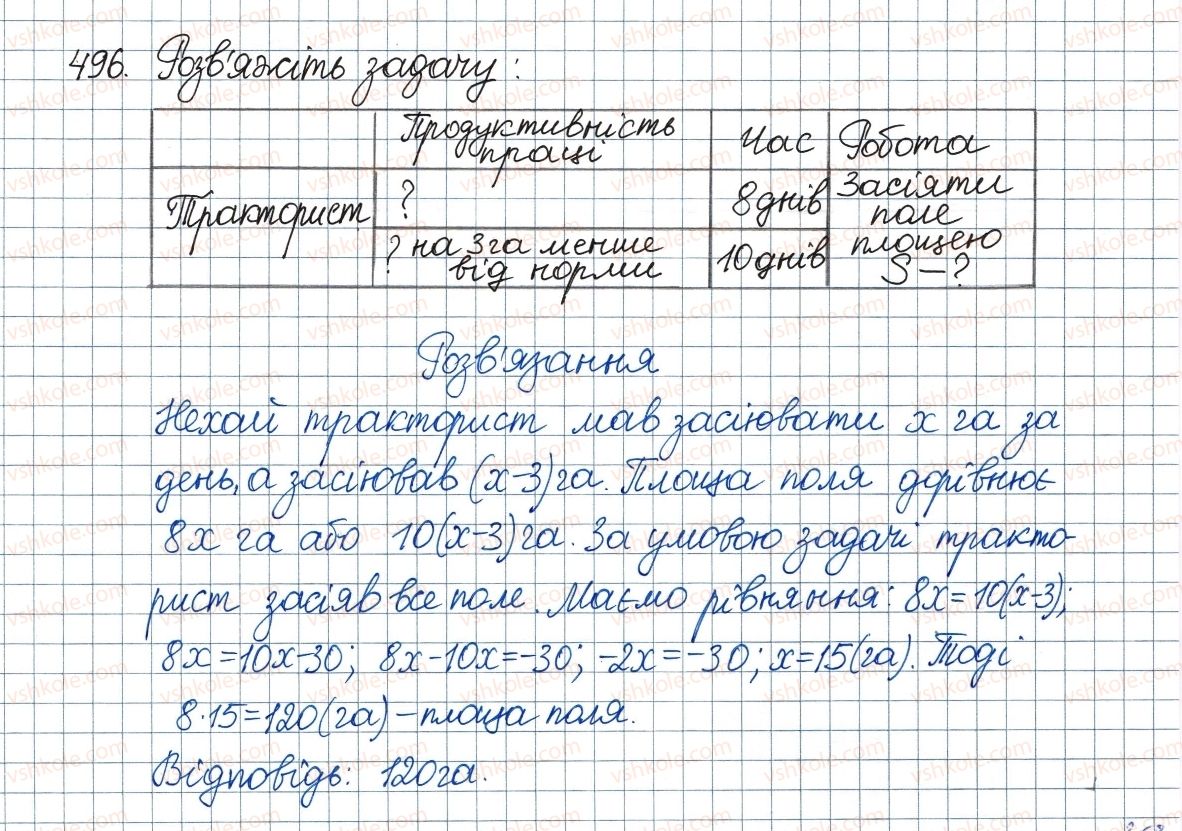 496. Розв'яжіть задачу:
Продуктивність праці
Час
Робота
Тракторист
?
8 днів
Засіяти поле площею S – ?
? на 3 га менше від норми
10 днів
Розв'язання
Нехай тракторист мав засіювати х га за
день, а засіював (х-3) га. Площа поля дорівнює
8х га або 10(х-3) га. За умовою задачі тракто-
рист засіяв все поле. Маємо рівняння: 8х=10(х-3);
8х=10х-30; 8х-10х=-30; -2х=-30; х=15(га). Тоді
8·15=120(га) – площа поля.
Відповідь: 120 га.
vshkole.com